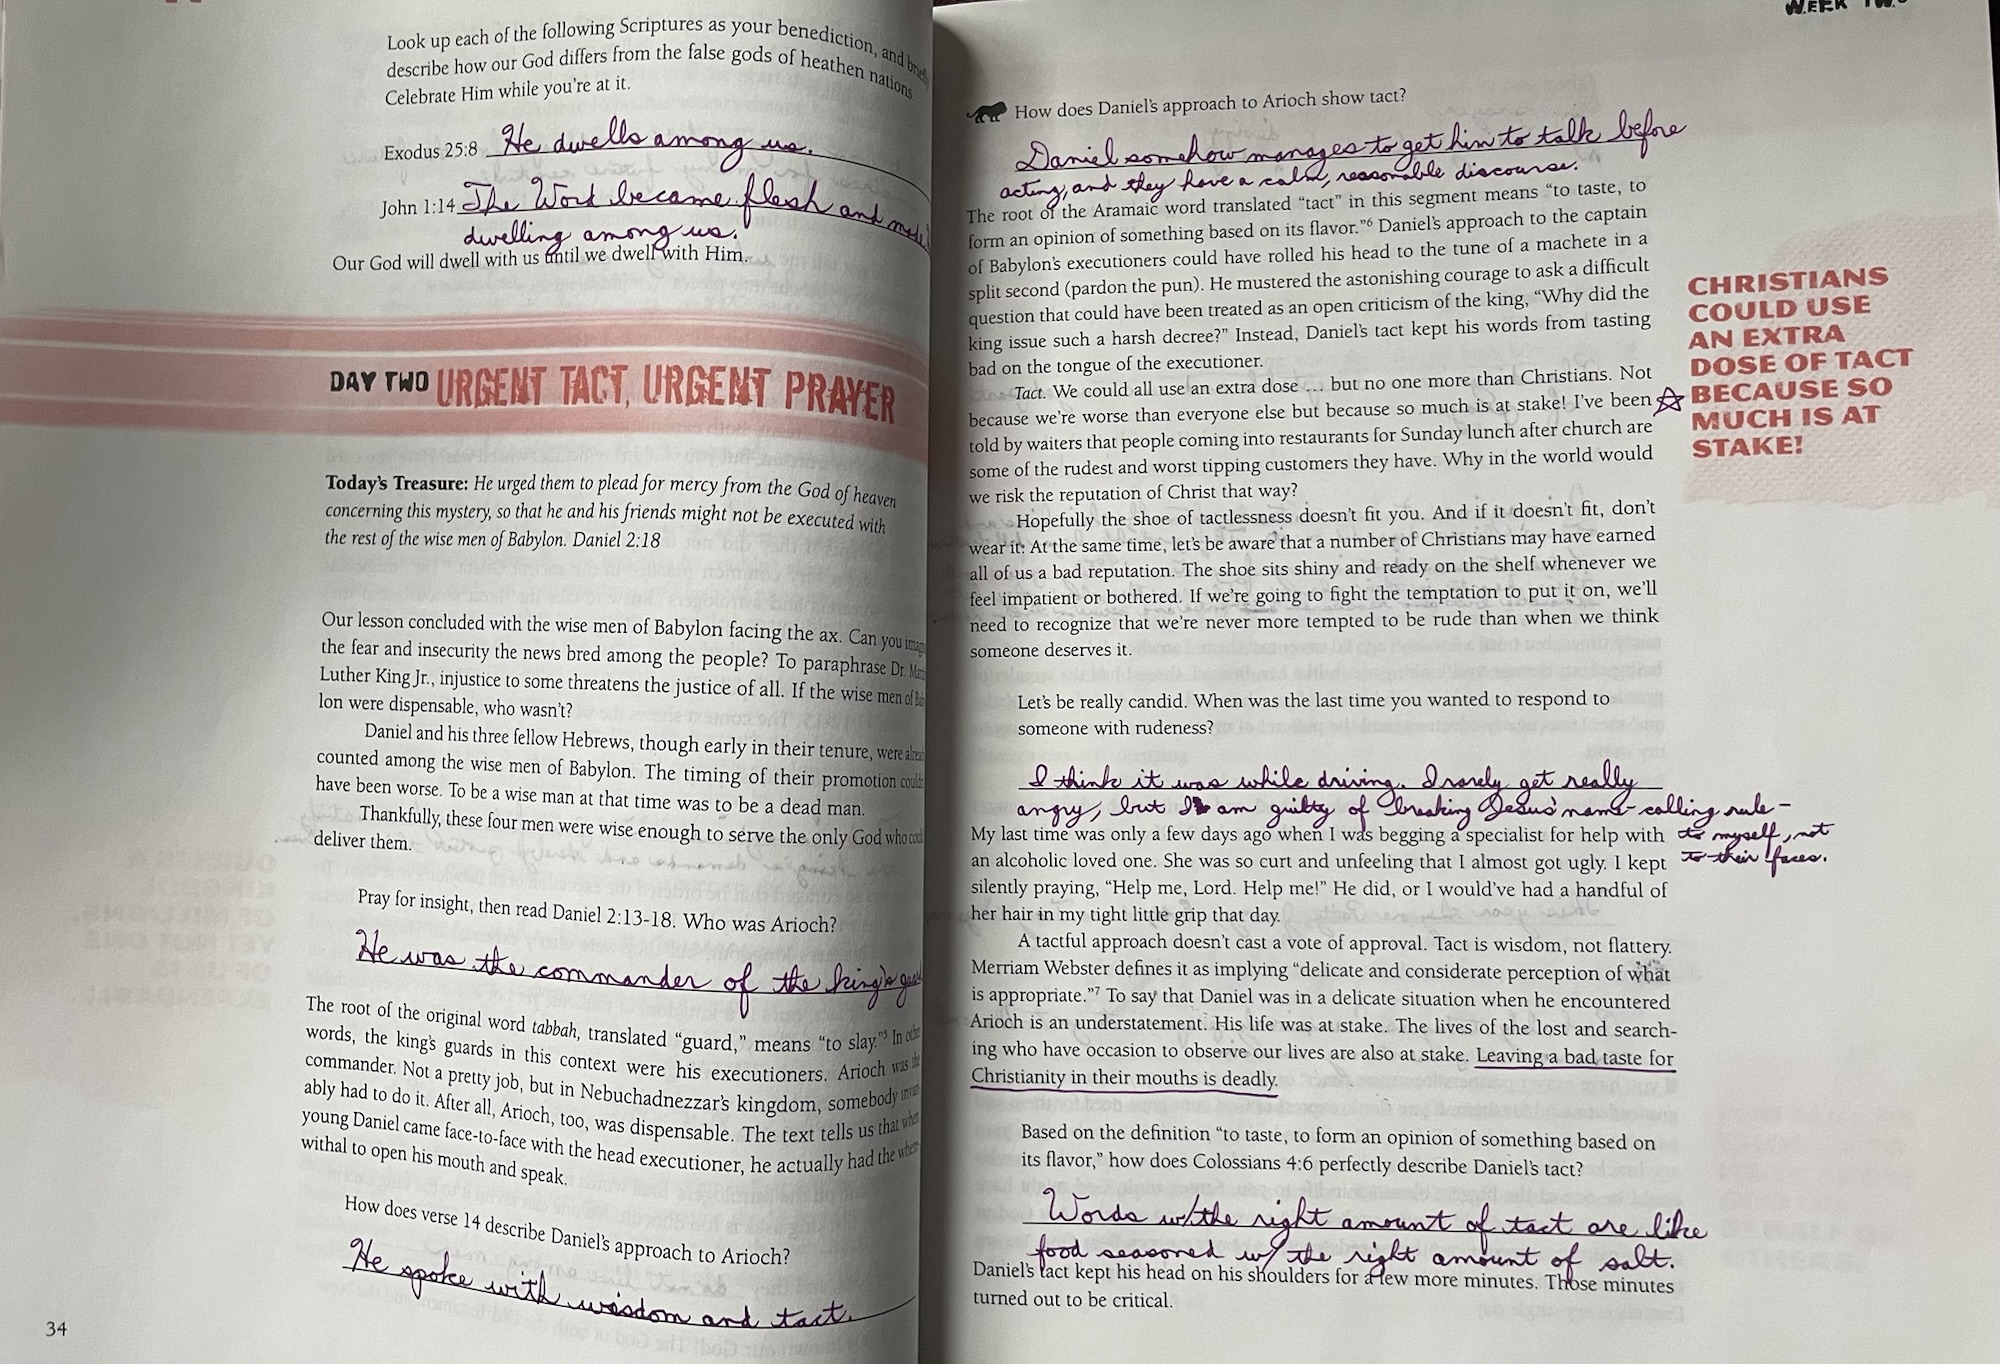 Look up each of the following Scriptures as your benediction, and briefly
describe how our God differs from the false gods of heathen nations
Celebrate Him while you're at it.
Exodus 25:8 He dwells among us.
John 1:14 The Word became flesh and made
dwelling among us.
Our God will dwell with us until we dwell with Him.
DAY TWO URGENT TACT, URGENT PRAYER
Today's Treasure: He urged them to plead for mercy from the God of heaven
concerning this mystery, so that he and his friends might not be executed with
the rest of the wise men of Babylon. Daniel 2:18
Our lesson concluded with the wise men of Babylon facing the ax. Can you
the fear and insecurity the news bred among the people? To paraphrase Dr.
Luther King Jr., injustice to some threatens the justice of all. If the wise men of
lon were dispensable, who wasn't?
Daniel and his three fellow Hebrews, though early in their tenure, were
counted among the wise men of Babylon. The timing of their promotion
have been worse. To be a wise man at that time was to be a dead man.
Thankfully, these four men were wise enough to serve the only God who
deliver them.
Pray for insight, then read Daniel 2:13-18. Who was Arioch?
He was the commander of the king's
The root of the original word tabbah, translated "guard," means "to slay."5 In
words, the king's guards in this context were his executioners. Arioch was
commander. Not a pretty job, but in Nebuchadnezzar's kingdom, somebody
ably had to do it. After all, Arioch, too, was dispensable. The text tells us that when
young Daniel came face-to-face with the head executioner, he actually had the
withal to open his mouth and speak.
How does verse 14 describe Daniel's approach to Arioch?
He spoke with wisdom and tact.
34
WEEK TWO
How does Daniel's approach to Arioch show tact?
Daniel somehow manages to get him to talk before
acting, and they have a calm, reasonable discourse.
The root of the Aramaic word translated "tact" in this segment means "to taste, to
form an opinion of something based on its flavor."6 Daniel's approach to the captain
of Babylon's executioners could have rolled his head to the tune of a machete in a
split second (pardon the pun). He mustered the astonishing courage to ask a difficult
question that could have been treated as an open criticism of the king, "Why did the
king issue such a harsh decree?" Instead, Daniel's tact kept his words from tasting
bad on the tongue of the executioner.
Tact. We could all use an extra dose ... but no one more than Christians. Not
because we're worse than everyone else but because so much is at stake! I've been
told by waiters that people coming into restaurants for Sunday lunch after church are
some of the rudest and worst tipping customers they have. Why in the world would
we risk the reputation of Christ that way?
Hopefully the shoe of tactlessness doesn't fit you. And if it doesn't fit, don't
wear it. At the same time, let's be aware that a number of Christians may have earned
all of us a bad reputation. The shoe sits shiny and ready on the shelf whenever we
feel impatient or bothered. If we're going to fight the temptation to put it on, we'll
need to recognize that we're never more tempted to be rude than when we think
someone deserves it.
CHRISTIANS
COULD USE
AN EXTRA
DOSE OF TACT
BECAUSE SO
MUCH IS AT
STAKE!
Let's be really candid. When was the last time you wanted to respond to
someone with rudeness?
I think it was while driving. I rarely get really
angry, but I am guilty of breaking Jesus' name-calling rule-
to myself, not
to their faces.
My last time was only a few days ago when I was begging a specialist for help with
an alcoholic loved one. She was so curt and unfeeling that I almost got ugly. I kept
silently praying, "Help me, Lord. Help me!" He did, or I would've had a handful of
her hair in my tight little grip that day.
A tactful approach doesn't cast a vote of approval. Tact is wisdom, not flattery.
Merriam Webster defines it as implying "delicate and considerate perception of what
is appropriate."7 To say that Daniel was in a delicate situation when he encountered
Arioch is an understatement. His life was at stake. The lives of the lost and search-
ing who have occasion to observe our lives are also at stake. Leaving a bad taste for
Christianity in their mouths is deadly.
Based on the definition "to taste, to form an opinion of something based on
its flavor," how does Colossians 4:6 perfectly describe Daniel's tact?
Words w/the right amount of tact are like
food seasoned w/ the right amount of salt.
Daniel's tact kept his head on his shoulders for a few more minutes. Those minutes
turned out to be critical.